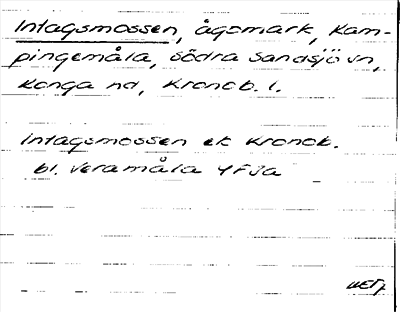 Intagsmossen, ägomark, Kam-
pingemåla, södra Sandsjö sn,
Konga hd, Kronob. l.
Intagsmossen ek Kronob.
bl. Veramåla 4F Ja